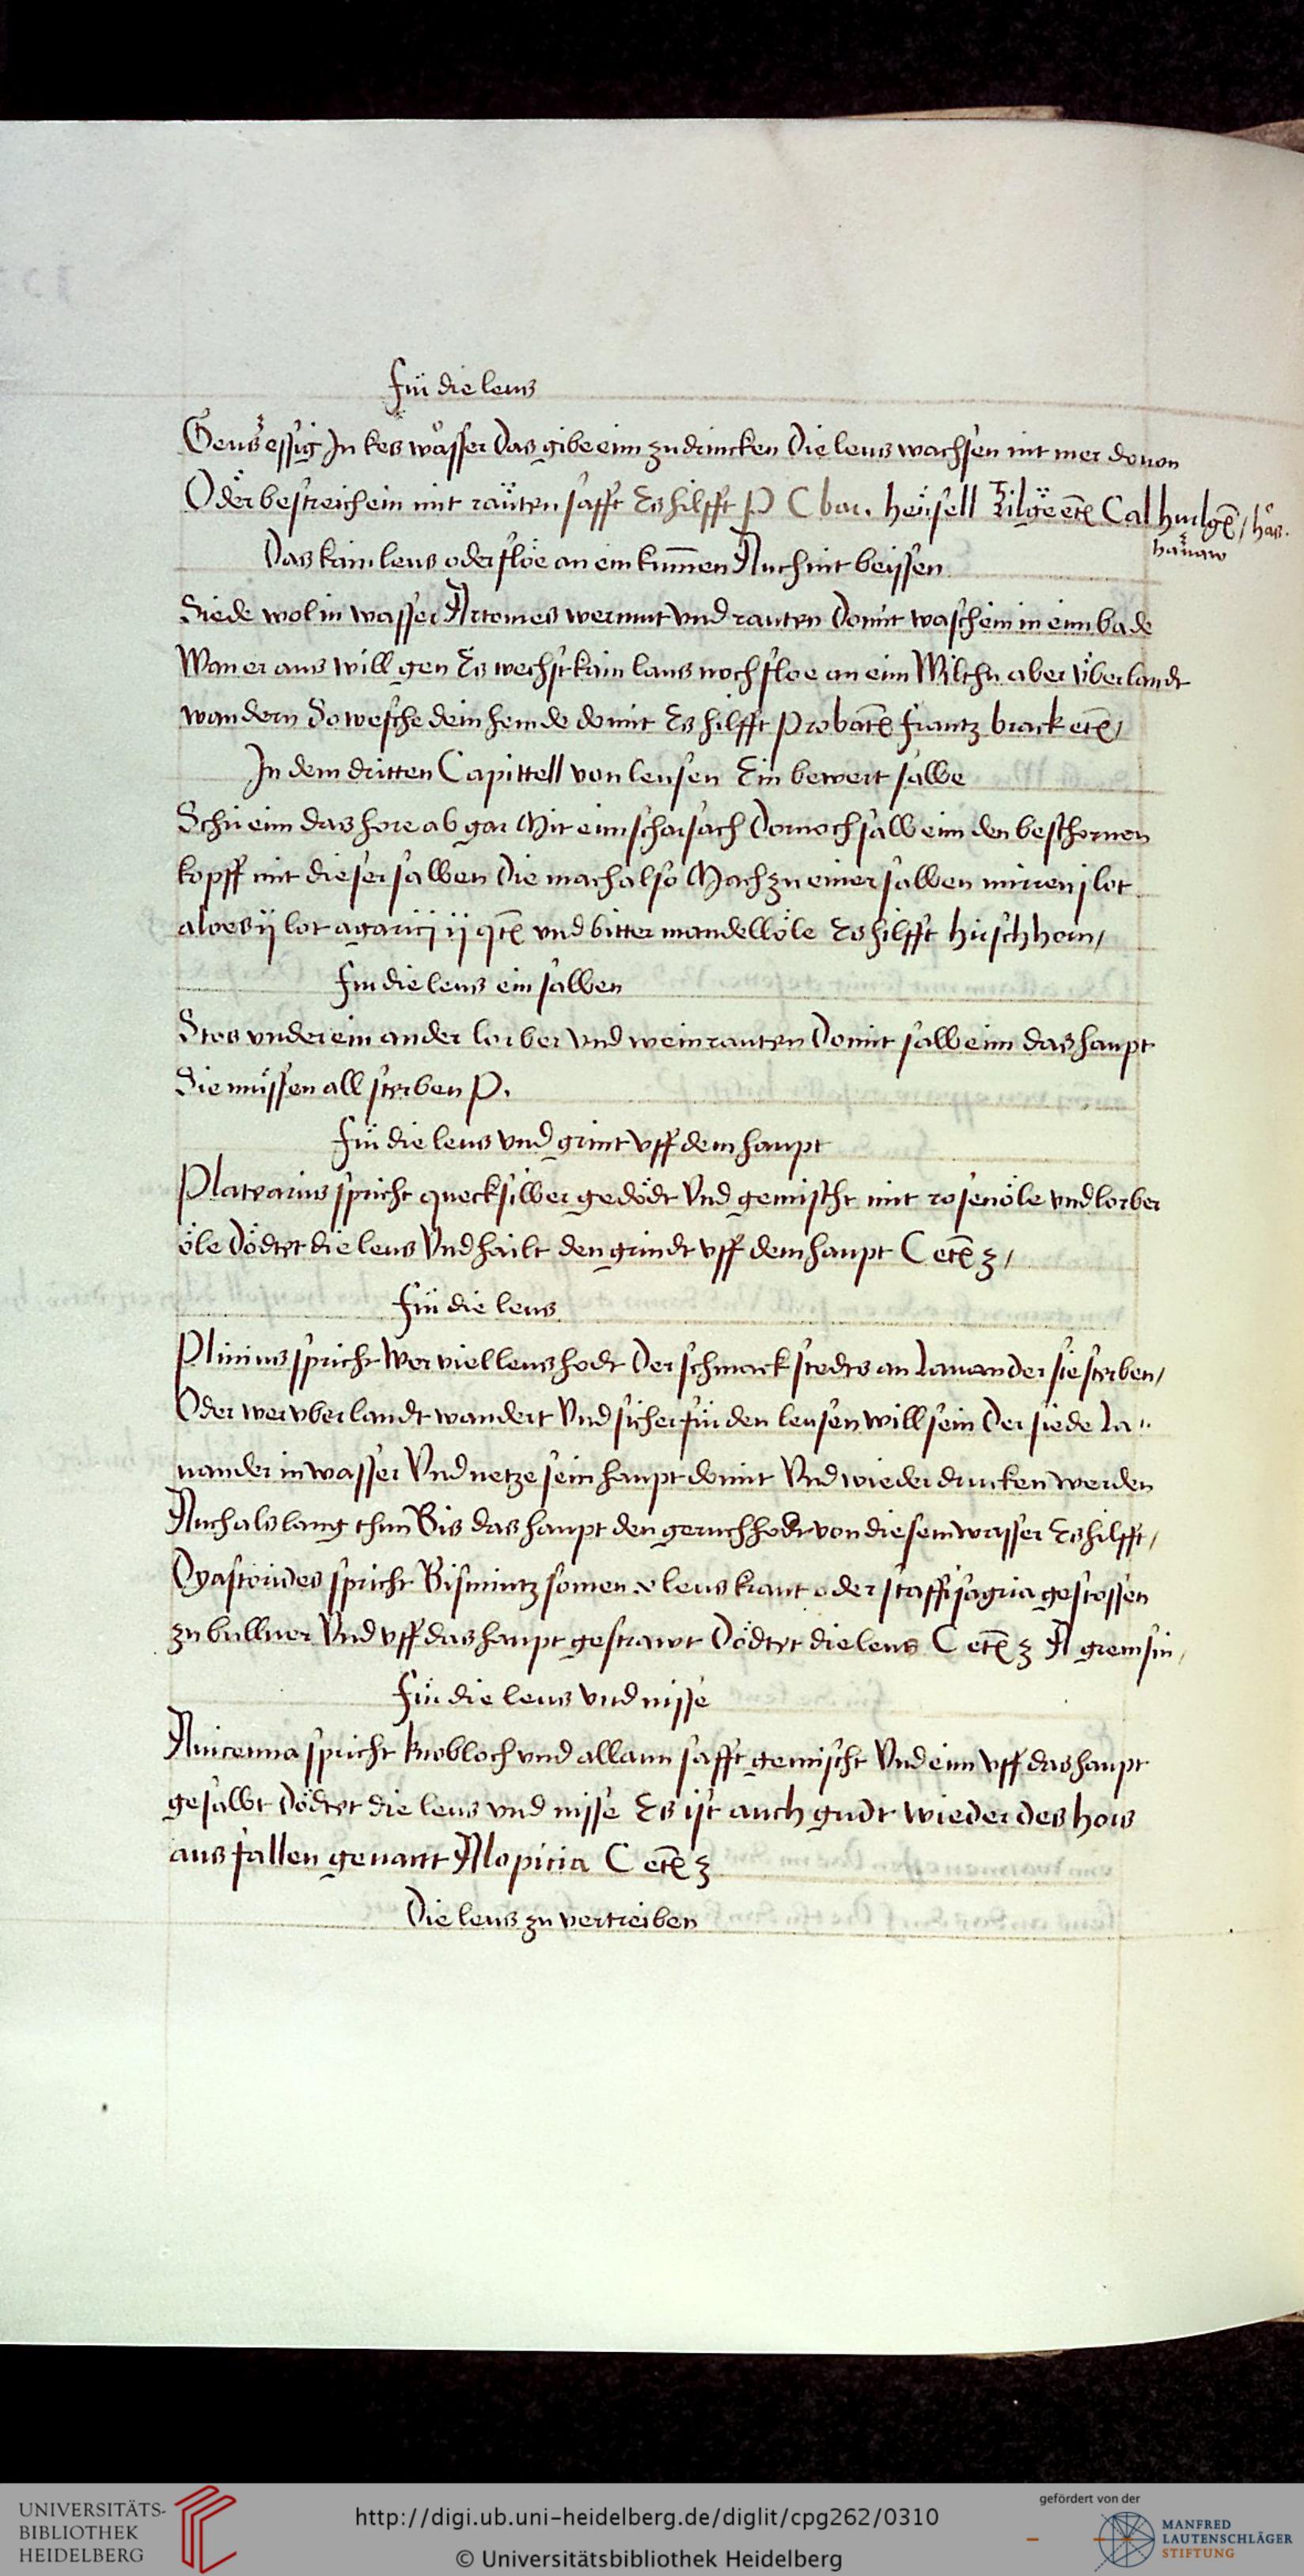 Für die leus
Geus essig In kes wasser Das gibe eim zu drincken Die leus wachsen nit mer douon
Oder bestreich ein mit rauten safft Es hilfft P C bar. heusell Zilge etc Cal
hanaw
Das kain leus oder floe an ein kumen Auch nit beissen
Siede wol in wasser Artomes wermut vnd rauten Domit wasch ein in eim bade
Wan er aus will gen Es wechst kain laus noch floe an eim Wilthu aber vber landt
wandern So wesche dein hemde domit Es hilfft probatc frantz brack etc/
In dem dritten Capittell von leusen Ein bewert salbe
Schir eim das hore ab gar Mit eim scharsach Dornoch salb eim den beschornen
kopff mit dieser salben Die mach also Mach zu einer salben mirren j lot
aloes ij lot agarici ij qtc vnd bitter mandellöle Es hilfft hirschhorn/
Fur die leus ein salben
Stos vnder ein ander lorber vnd weinrauten Domit salb eim das haupt
Sie müssen all sterben P.
Für die leus vnd grint vff dem haupt
Platearius spricht quecksilber gedödt Vnd gemischt mit rosenöle vnd lorber
öle Dödtet die leus Vnd hailt den grindt vff dem haupt C etc z/
Für die leus
Plinius spricht Wer viel leus hodt Der schmack stedts an Lauander sie sterben/
Oder wer vber landt wandert Vnd sicher für den leusen will sein Der siede La"
uander in wasser Vnd netze sein haupt domit Vnd wieder drucken werden
Auch als lang thun Bis das haupt den geruch hodt von diesem wasser Es hilfft/
Dyascorides spricht Bismintz somen leuskraut oder staffisagria gestossen
zu bulluer Vnd vff das haupt gestrawt Dödtet die leus C etc z A gremsin/
Für die leus vnd nisse
Auicenna spricht knobloch vnd allaun safft gemischt Vnd eim vff das haupt
gesalbt Dödtet die leus vnd nisse Es ist auch gudt wieder des hors
aus fallen genant Alopicia C etc z
Die leus zu vertreiben
UNIVERSITÄTS-
BIBLIOTHEK
HEIDELBERG
http://digi.ub.uni-heidelberg.de/diglit/cpg262/0310
© Universitätsbibliothek Heidelberg
gefördert von der
MANFRED
LAUTENSCHLÄGER
STIFTUNG